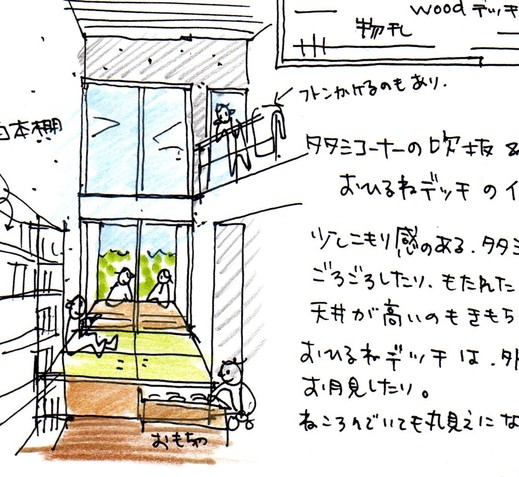 woodデッキ
物干し
フトンかけるのもあり.
本棚
タタミコーナーの吹抜 &
おひるねデッキ の イ
少しこもり感のある.タタミ
ごろごろしたり.もたれた
天井が高いのもきもち
おひるねデッキは.外
お月見したり。
ねころんでいても丸見えにな
おもちゃ